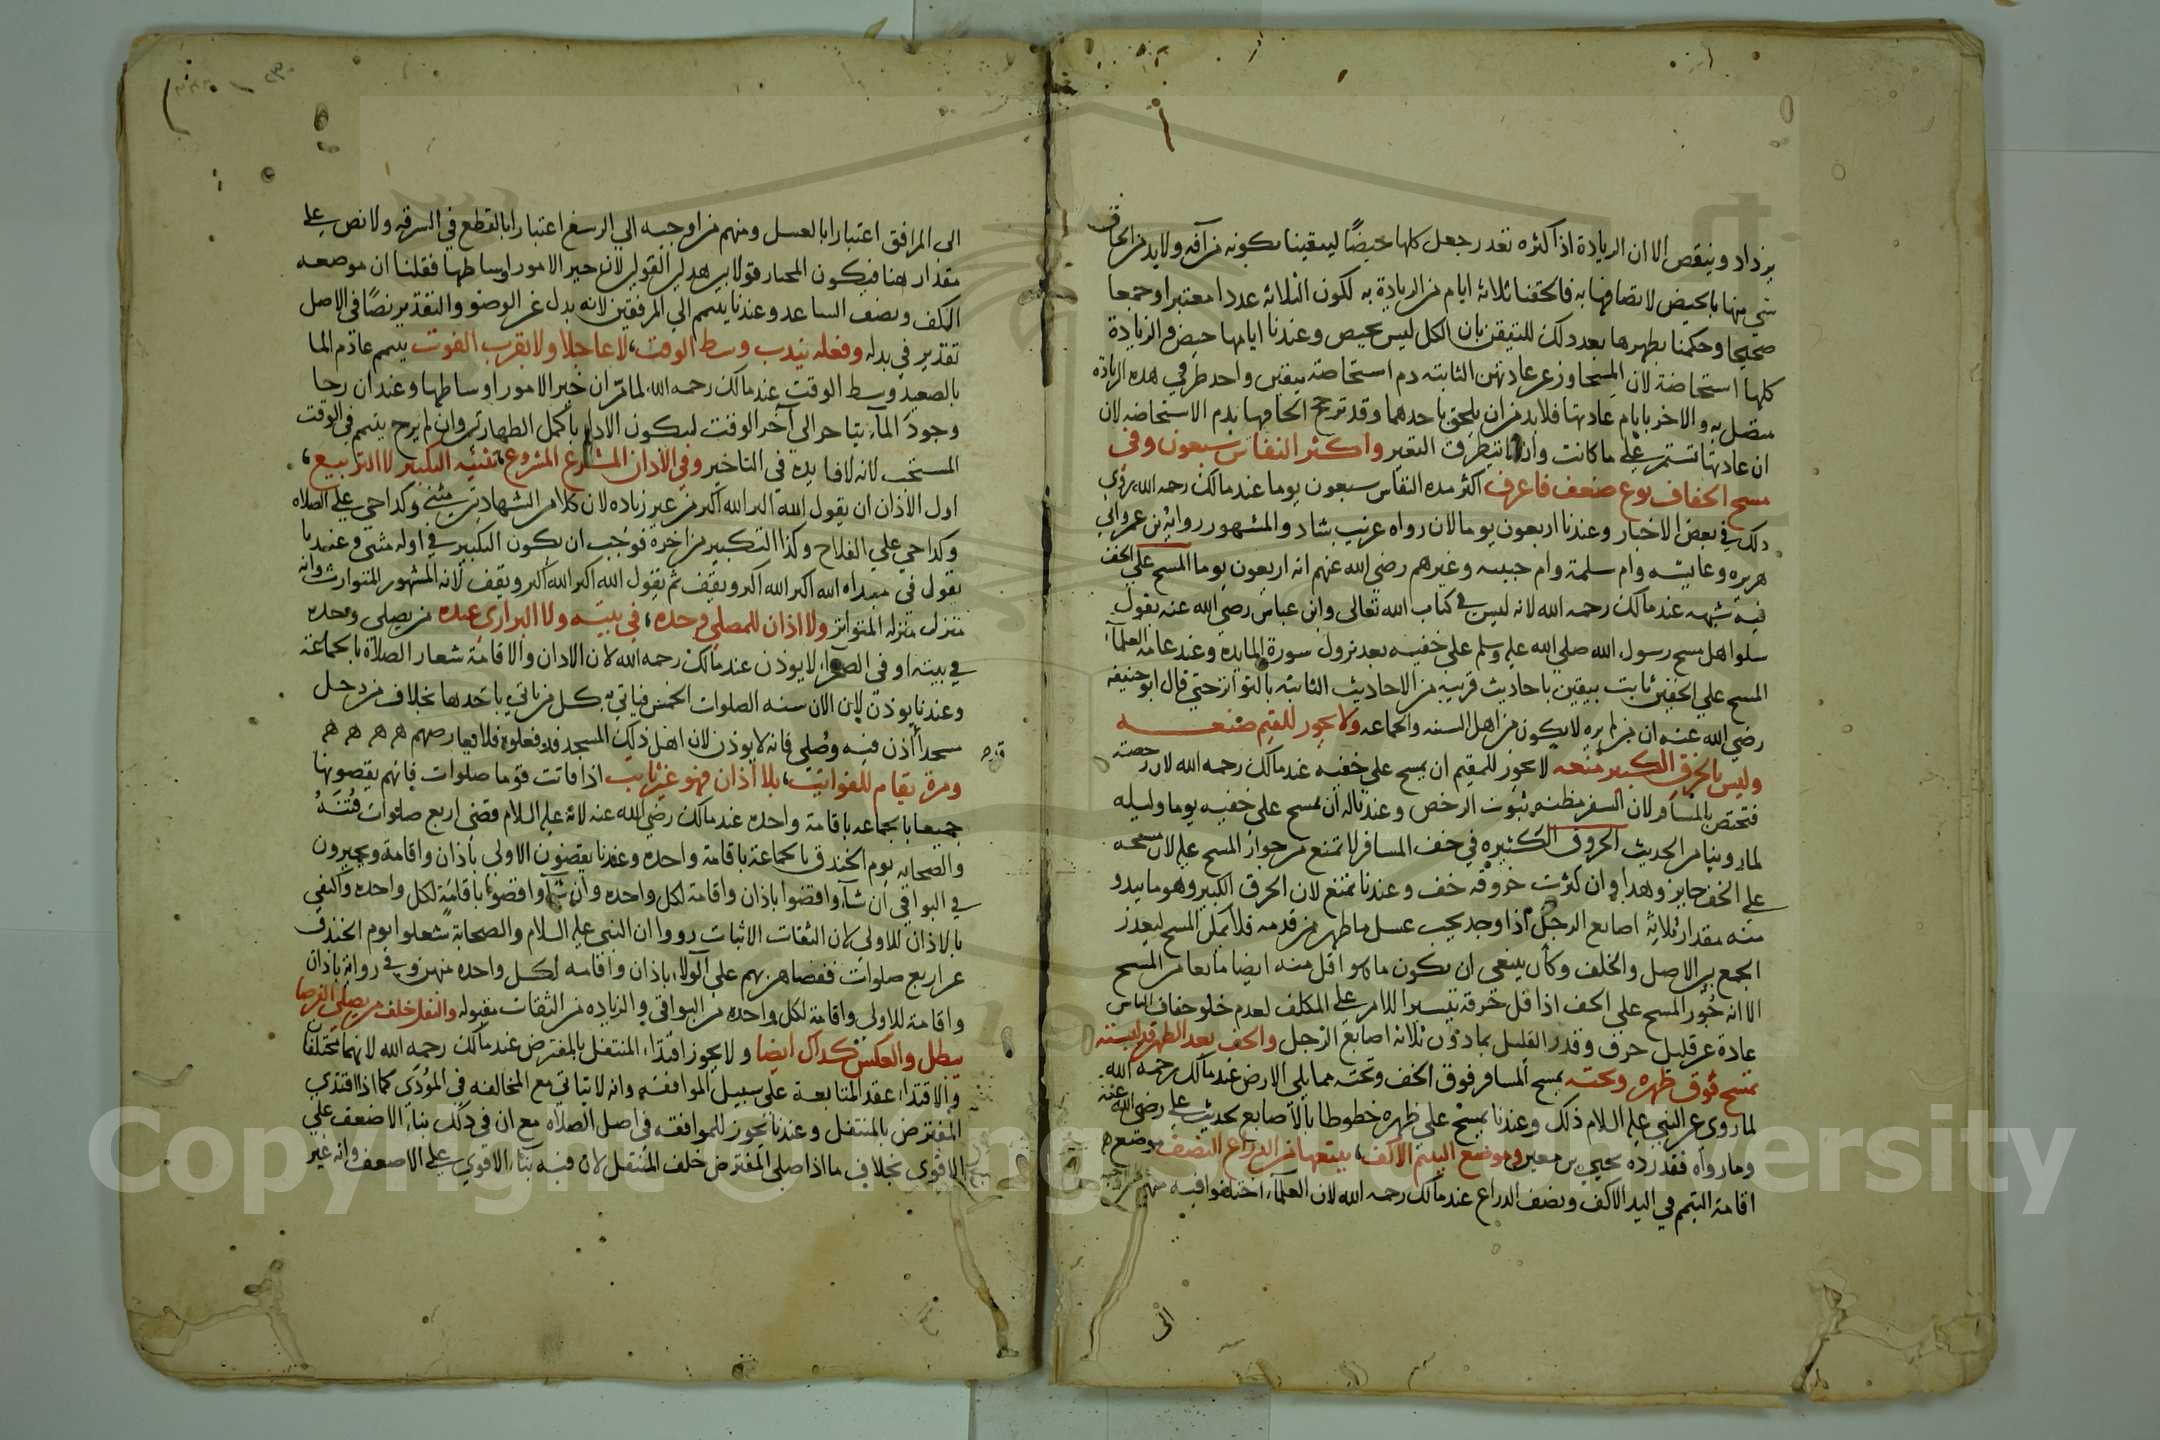 يزداد وينقص الا ان الزيادة اذا كثره تعدد رجعل كلها حيضا ليقيننا بكونه من آفه ولا بد من الحاق
شي منها بالحيض لاتصافها به فالحقنا ثلاثة ايام من الزيادة به لكون الثلاثة عددا معتبرا وجمعا
صحيحا وحكمنا بطهرها بعد ذلك للتيقن بان الكل ليس بحيض وعندنا ايامها حيض والزيادة
كلها استحاضة لان المتجاوز عن عادتهن الثابته دم استحاضة بيقين واحد طرفي هذه الزيادة
متصل به والاخر بايام عادتها فلا بد من ان يلحق باحدهما وقد ترجح الحاقها بدم الاستحاضه لان
ان عادتها تستمر على ما كانت وان يتطرق التغير واكثر النفاس سبعون وفي
مسح الخفاف نوع ضعف فاعرف اكثر مدة النفاس سبعون يوما عند مالك رحمه الله يروي
ذلك في بعض الاخبار وعندنا اربعون يوما لان رواه غريب شاذ والمشهور رواية بن عمر وابي
هريره وعايشه وام سلمة وام حبيبه وغيرهم رضي الله عنهم انه اربعون يوما المسح على الخف
فيه شبهه عند مالك رحمه الله لانه ليس في كتاب الله تعالى وابن عباس رضي الله عنه يقول
سلوا هل مسح رسول الله صلى الله عليه وسلم على خفيه بعد نزول سورة المايده وعند عامة العلمآء
المسح على الخفين ثابت بيقين باحاديث قريبه من الاحاديث الثابته بالتواتر حتى قال ابو حنيفه
رضي الله عنه ان من لم يره لا يكون من اهل السنه والجماعه ولا يجوز للمقيم صنعه
وليس بالخرق الكبير منعه لا يجوز للمقيم ان يمسح على خفيه عند مالك رحمه الله لان رخصته
فتختص بالمسافر لان السفر مظنه ثبوت الرخص وعندنا له ان يمسح على خفيه يوما وليله
لما روينا من الحديث الخروق الكثيره في خف المسافر لا تمنع من جواز المسح عليه لان مسحه
على الخف جايز وهذا وان كثرت خروقه خف وعندنا تمنع لان الخرق الكبير وهو ما يبدو
منه مقدار ثلاثة اصابع الرجل اذا وجد يجب غسل ما ظهر من قدمه فلا يمكن المسح ليعذر
الجمع بين الاصل والخلف وكان ينبغي ان يكون ما هو اقل منه ايضا مانعا من المسح
الا انه جوز المسح على الخف اذا قل خرقه تيسيرا للامر على المكلف لعدم خلو خفاف الناس
عادة عن قليل خرق وقدر القليل بما دون ثلاثة اصابع الرجل والخف بعد الطهر قد لبسته
تمسح فوق ظهره وتحته يمسح المسافر فوق الخف وتحته مما يلي الارض عند مالك رحمه الله
لما روي عن النبي عليه السلام ذلك وعندنا يمسح على ظهره خطوطا بالاصابع لحديث علي رضي الله عنه
وما رواه فقد رده يحيي بن معين وموضع التيمم الاكف، يتبعها من الذراع النصف موضع
اقامة التيمم في اليد الاكف ونصف الذراع عند مالك رحمه الله لان العلمآء اختلفوا فيه منهم من اوجبه
الى
الى المرافق اعتبارا بالغسل ومنهم من اوجبه الى الرسغ اعتبارا بالقطع في السرقه ولا نص على
مقدار هنا فيكون المختار قولا بين هذين القولين لان خير الامور اوساطها فقلنا ان موضعه
الكف ونصف الساعد وعندنا يتيمم الى المرفقين لانه بدل عن الوضو والتقدير نصا في الاصل
تقدير في بدله وفعله يندب وسط الوقت، لا عاجلا ولا بقرب الفوت يتيمم عادم الما
بالصعيد وسط الوقت عند مالك رحمه الله لما مر ان خير الامور اوساطها وعند ان رجا
وجود المآء يتاخر الى آخر الوقت ليكون الادا باكمل الطهارتين وان لم يرج يتيمم في الوقت
المستحب لانه لا فايدة في التاخير وفي الاذان المشرع تثنيه التكبير لا التربيع،
اول الاذان ان يقول الله اكبر الله اكبر من غير زياده لان كلا من الشهادتين مثنى وكذا حي على الصلاه
وكذا حي على الفلاح وكذا التكبير من اخره فوجب ان يكون التكبير في اوله مثنى وعندنا
يقول في مبداه الله اكبر الله اكبر ويقف ثم يقول الله اكبر الله اكبر ويقف لانه المشهور المتوارث وانه
متنزل منزله المتواتر ولا اذان للمصلي وحده، في بيته ولا البراري عنده من يصلي وحده
في بيته او في الصحرا لا يوذن عند مالك رحمه الله لان الاذان والاقامة شعار الصلاة بالجماعة
وعندنا يوذن لان الاذان سنه الصلوات الخمس فياتي به كل من ياتي باحدها بخلاف من دخل
مسجدا أذن فيه وصلي فانه لا يوذن لان اهل ذلك المسجد قد فعلوه فلا يعارضهم
ومرة يقام للفوايت، بلا اذان فهو غير نايب اذا فاتت قوما صلوات فانهم يقضونها
جميعا بالجماعه باقامة واحده عند مالك رضي الله عنه لانه عليه السلام قضى اربع صلوات فتنه
والصحابه يوم الخندق بالجماعة باقامة واحده وعندنا يقضون الاولى باذان واقامة ويخيرون
في البواقي ان شآوا قضوا باذان واقامة لكل واحده وان شآوا قضوا باقامة لكل واحده واكتفي
بالاذان للاولى لان الثقات الاثبات رووا ان النبي عليه السلام والصحابة شغلوا يوم الخندق
عن اربع صلوات فقضاهن بهم على الولاء باذان واقامه لكل واحده منهن وفي رواية باذان
واقامة للاولى واقامة لكل واحده من البواقي والزياده من الثقات مقبوله والنفل خلف من يصلي الفرضا
يبطل والعكس كذاك ايضا ولا يجوز اقتداء المتنفل بالمفترض عند مالك رحمه الله لانهما مختلفان
والاقتداء عقد المتابعة على سبيل الموافقه وانه لا يتاتي مع المخالفه في المؤدى كما اذا اقتدي
المفترض بالمتنفل وعندنا يجوز للموافقه في اصل الصلاه مع ان في ذلك بناء الاضعف علي
الاقوى بخلاف ما اذا صلى المفترض خلف المتنفل لان فيه بناء الاقوى على الاضعف وانه غير
Copyright © King Saud University